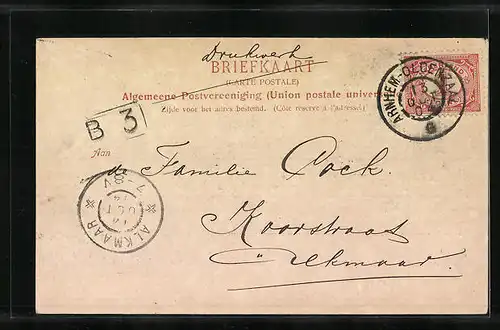 Drukwerk
BRIEFKAART
(CARTE POSTALE)
Algemeene Postvereeniging (Union postale univer
Zijde voor het adres bestemd. (Côté réservé à l'adresse.)
ARNHEM-OLDENZAAL
B 3
Aan
de Familie Cock.
Koorstraat
Alkmaar.
7-8V
OCT
ALKMAAR